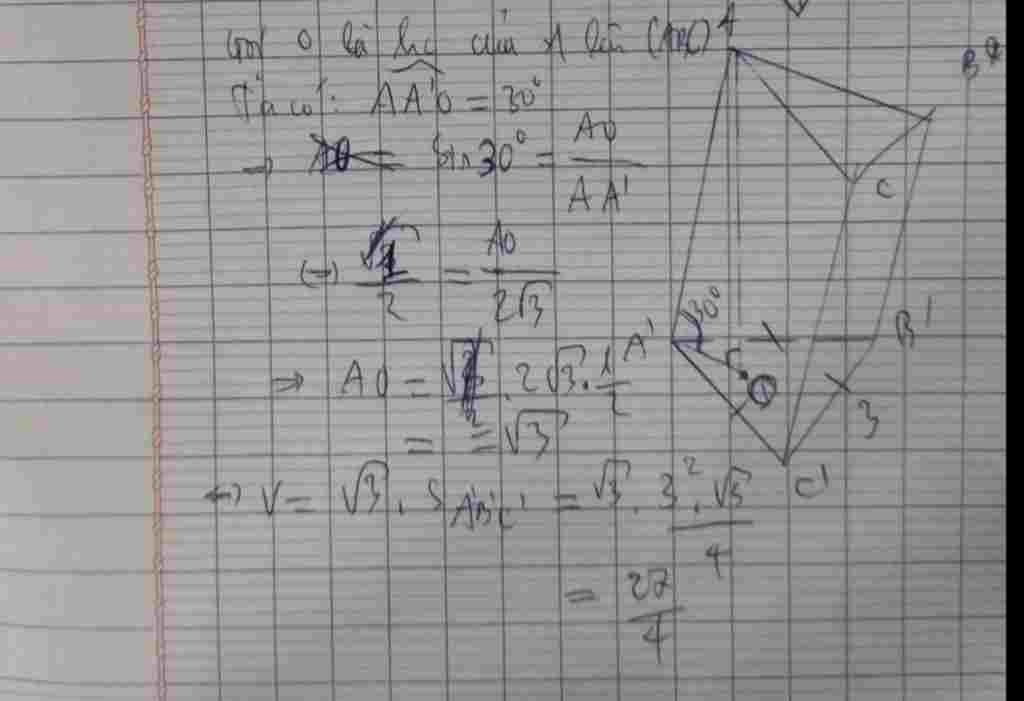 Gọi O là hc của A lên (ABC)
Ta có: AA'O = 30°
→ sin30° = AO / AA'
(→) 1/2 = AO / 2√3
⇒ AO = 2√3 . 1/2
= = √3
↔ V = √3 . S A'B'C' = √3 . 3² . √3 / 4
= 27/4
A
B
C
30°
A'
B'
3
C'